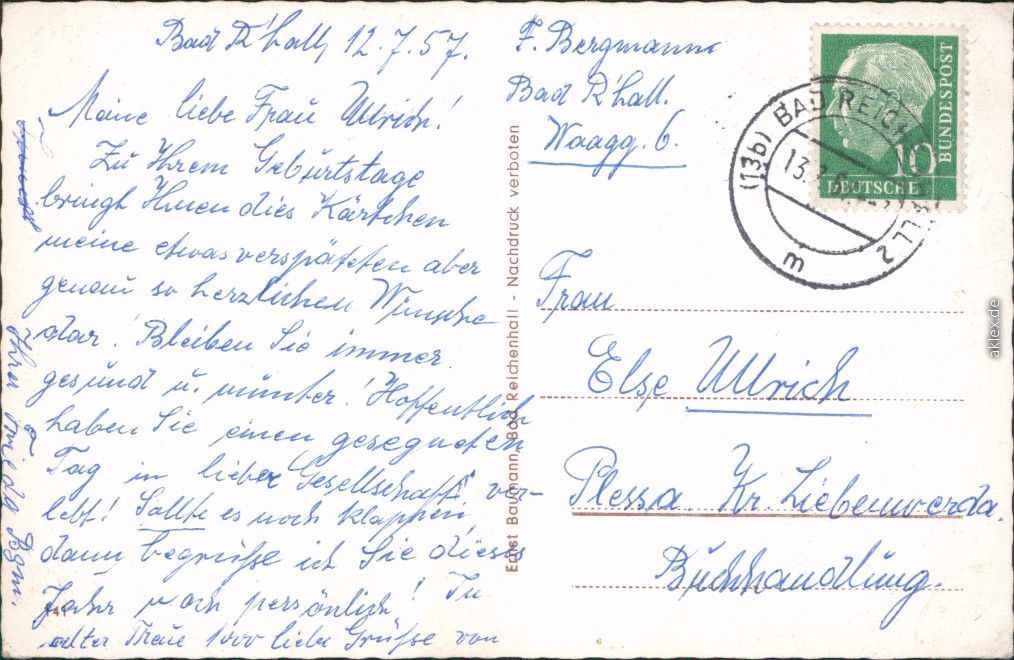 Bad R'hall, 12.7.57.
Meine liebe Frau Ullrich!
Zu Ihrem Geburtstage
bringt Ihnen dies Kärtchen
meine etwas verspäteten aber
genau so herzlichen Wünsche
dar! Bleiben Sie immer
gesund u. munter! Hoffentlich
haben Sie einen gesegneten
Tag in lieber Gesellschaft ver-
lebt! Sollte es noch klappen,
dann begrüße ich Sie dieses
Jahr noch persönlich! In
alter Treue 1000 liebe Grüße von
Ihrer Bgm.
F. Bergmann
Bad R'hall.
Waagg. 6.
Ernst Baumann, Bad Reichenhall - Nachdruck verboten
DEUTSCHE
BUNDESPOST
10
(13b) BAD REICHENHALL 2
13.7.
m
Frau
Else Ullrich
Plessa Kr. Liebenwerda.
Buchhandlung.
aklex.de